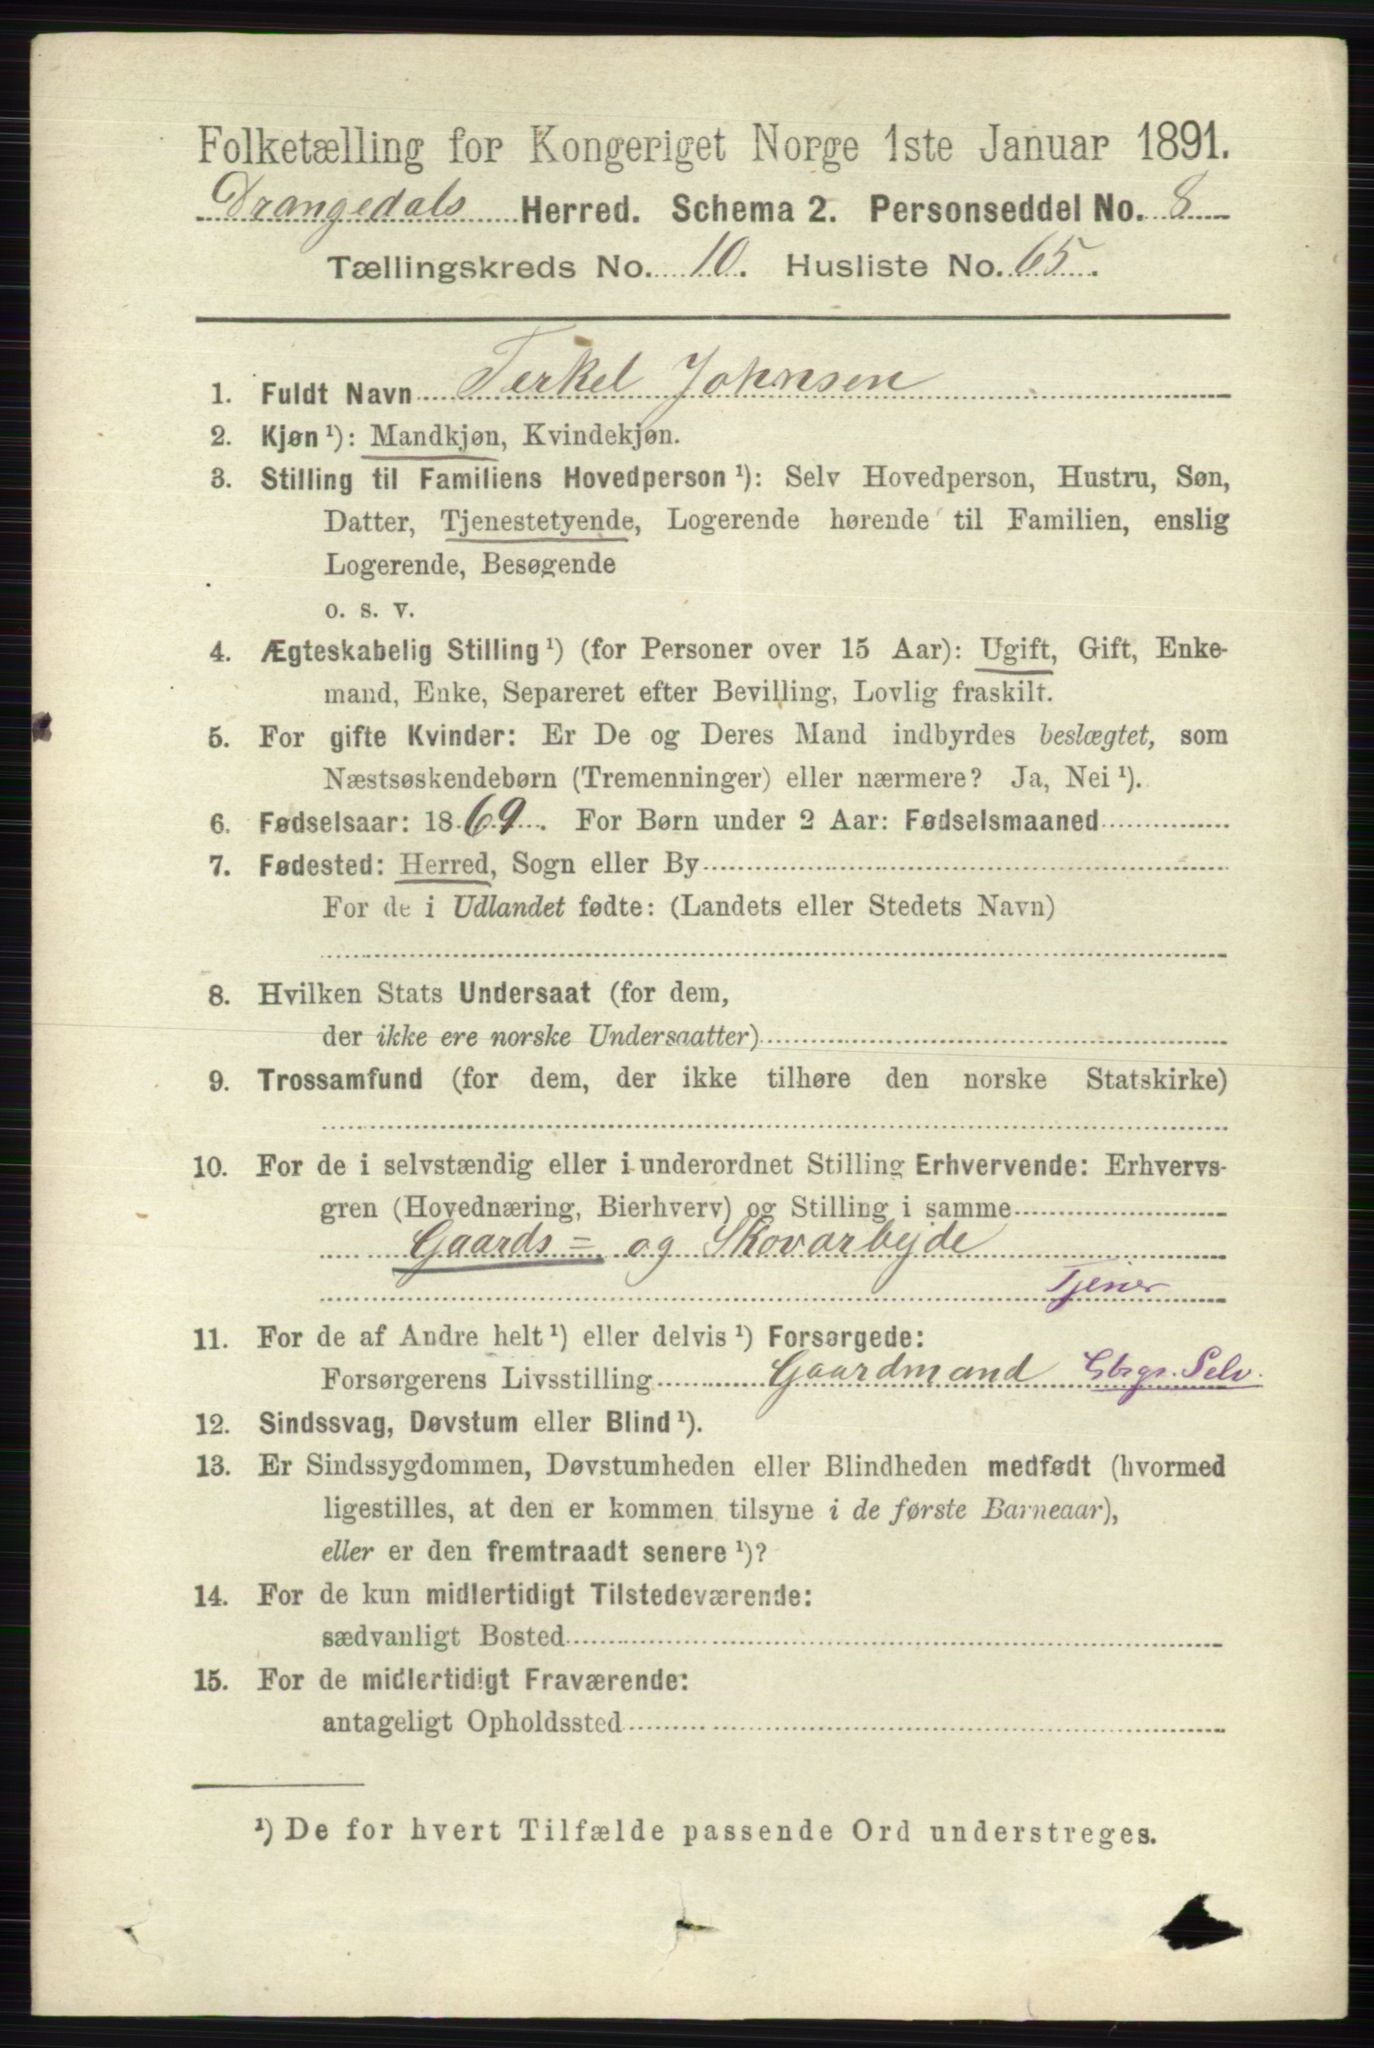 Folketælling for Kongeriget Norge 1ste Januar 1891.
Drangedals Herred. Schema 2. Personseddel No. 8
Tællingskreds No. 10. Husliste No. 65.
1. Fuldt Navn Terkel Johnsen
2. Kjøn ¹): Mandkjøn, Kvindekjøn.
3. Stilling til Familiens Hovedperson ¹): Selv Hovedperson, Hustru, Søn,
Datter, Tjenestetyende, Logerende hørende til Familien, enslig
Logerende, Besøgende
o. s. v.
4. Ægteskabelig Stilling ¹) (for Personer over 15 Aar): Ugift, Gift, Enke-
mand, Enke, Separeret efter Bevilling, Lovlig fraskilt.
5. For gifte Kvinder: Er De og Deres Mand indbyrdes beslægtet, som
Næstsøskendebørn (Tremenninger) eller nærmere? Ja, Nei ¹).
6. Fødselsaar: 1869. For Børn under 2 Aar: Fødselsmaaned
7. Fødested: Herred, Sogn eller By
For de i Udlandet fødte: (Landets eller Stedets Navn)
8. Hvilken Stats Undersaat (for dem,
der ikke ere norske Undersaatter)
9. Trossamfund (for dem, der ikke tilhøre den norske Statskirke)
10. For de i selvstændig eller i underordnet Stilling Erhvervende: Erhvervs-
gren (Hovednæring, Bierhverv) og Stilling i samme
Gaards = og Skovarbejde
Tjener
11. For de af Andre helt ¹) eller delvis ¹) Forsørgede:
Forsørgerens Livsstilling Gaardmand Gbrgr. Selv.
12. Sindssvag, Døvstum eller Blind ¹).
13. Er Sindssygdommen, Døvstumheden eller Blindheden medfødt (hvormed
ligestilles, at den er kommen tilsyne i de første Barneaar),
eller er den fremtraadt senere ¹)?
14. For de kun midlertidigt Tilstedeværende:
sædvanligt Bosted
15. For de midlertidigt Fraværende:
antageligt Opholdssted
¹) De for hvert Tilfælde passende Ord understreges.